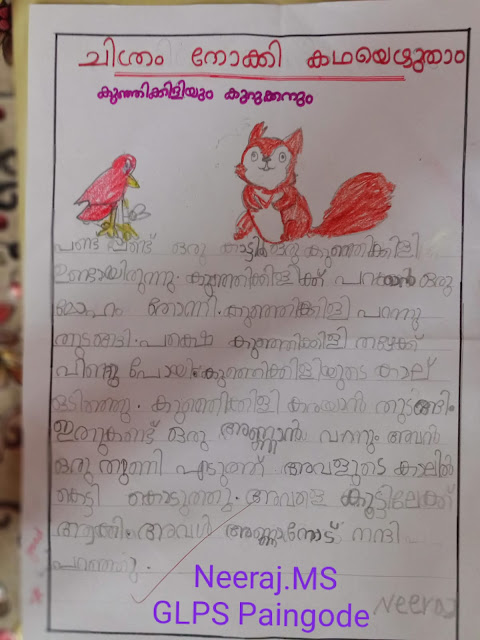 ചിത്രം നോക്കി കഥയെഴുതാം
കുഞ്ഞിക്കിളിയും കുറുക്കനും
പണ്ട് പണ്ട് ഒരു കാട്ടിൽ ഒരു കുഞ്ഞിക്കിളി
ഉണ്ടായിരുന്നു. കുഞ്ഞിക്കിളിക്ക് പറക്കാൻ ഒരു
മോഹം തോന്നി. കുഞ്ഞിക്കിളി പറന്നു
തുടങ്ങി. പക്ഷെ കുഞ്ഞിക്കിളി താഴേക്ക്
വീണു പോയി. കുഞ്ഞിക്കിളിയുടെ കാല്
ഒടിഞ്ഞു. കുഞ്ഞിക്കിളി കരയാൻ തുടങ്ങി.
ഇതുകണ്ട് ഒരു അണ്ണാൻ വന്നു അവൻ
ഒരു തുണി എടുത്ത് അവളുടെ കാലിൽ
കെട്ടി കൊടുത്തു. അവളെ കൂട്ടിലേക്ക്
അവൾ അണ്ണാനോട് നന്ദി
പറഞ്ഞു.
Neeraj.MS
GLPS Paingode
Neeraj